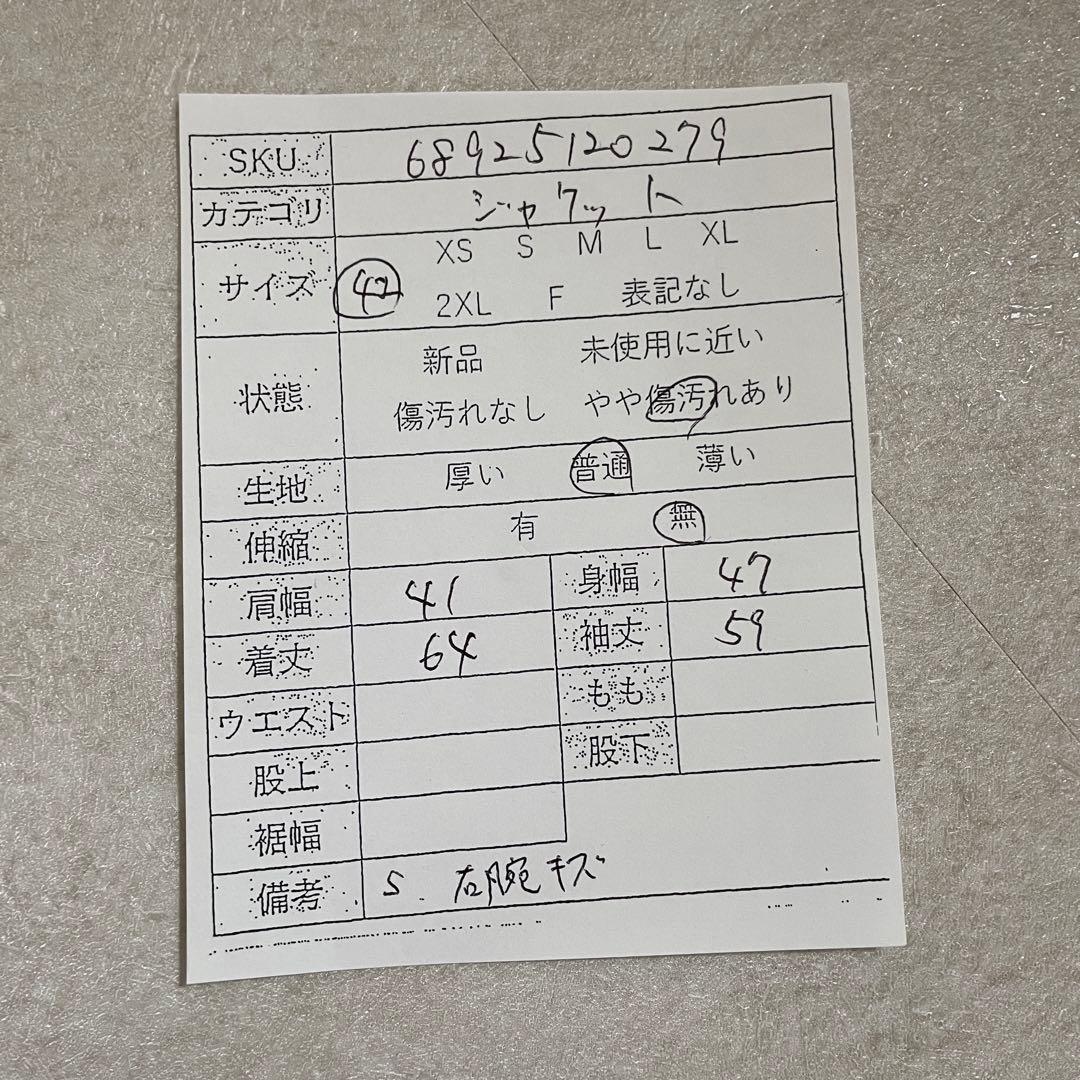 SKU 68925120279
カテゴリ ジャケット
サイズ XS S M L XL
42 2XL F 表記なし
状態 新品 未使用に近い
傷汚れなし やや傷汚れあり
生地 厚い 普通 薄い
伸縮 有 無
肩幅 41 身幅 47
着丈 64 袖丈 59
ウエスト もも
股上 股下
裾幅
備考 S 右腕キズ